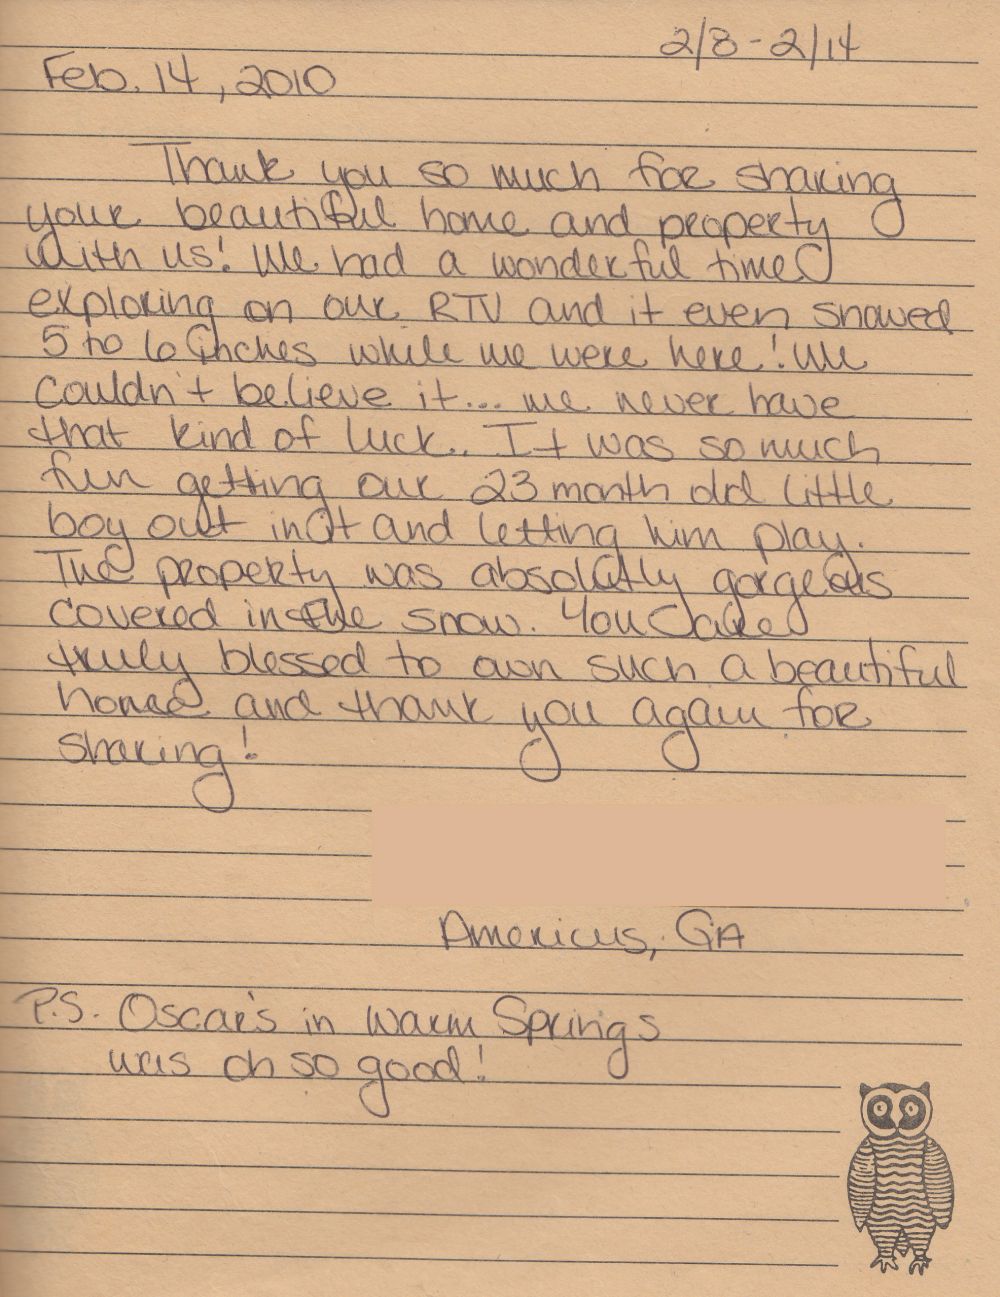 2/8 - 2/14
Feb. 14, 2010
Thank you so much for sharing
your beautiful home and property
with us! We had a wonderful time
exploring on our RTV and it even snowed
5 to 6 inches while we were here! We
couldn't believe it... we never have
that kind of luck.. It was so much
fun getting our 23 month old little
boy out in it and letting him play.
The property was absolutly gorgeous
covered in the snow. You are
truly blessed to own such a beautiful
home and thank you again for
sharing!
Americus, GA
P.S. Oscar's in Warm Springs
was oh so good!